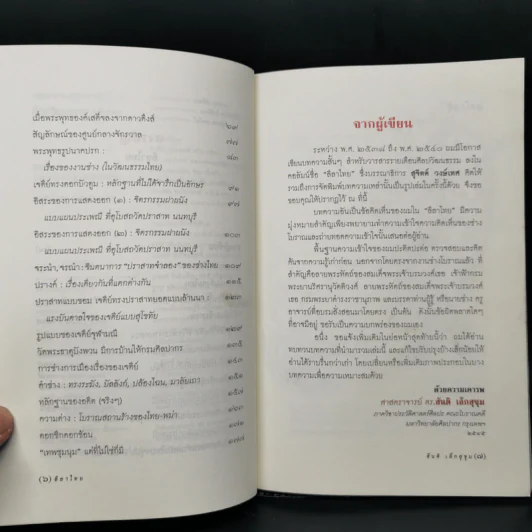 เมื่อพระพุทธองค์เสด็จลงจากดาวดึงส์ ๖๙
สัญลักษณ์ของศูนย์กลางจักรวาล ๗๗
พระพุทธรูปนาคปรก : ๘๓
เรื่องของงานช่าง (ในวัฒนธรรมไทย)
เจดีย์ทรงดอกบัวตูม : หลักฐานที่ไม่ได้จารึกเป็นอักษร ๙๑
อิสระของการแสดงออก (๑) : จิตรกรรมฝาผนัง ๙๗
แบบแผนประเพณี ที่อุโบสถวัดปราสาท นนทบุรี
อิสระของการแสดงออก (๒) : จิตรกรรมฝาผนัง
แบบแผนประเพณี ที่อุโบสถวัดปราสาท นนทบุรี
ซระนำ, จรนำ : จินตนาการ "ปราสาทจำลอง" ของช่างไทย ๑๐๙
ปรางค์ : เรื่องเดียวกันที่แตกต่างกัน ๑๑๕
ปราสาทแบบขอม เจดีย์ทรงปราสาทยอดแบบล้านนา :
แรงบันดาลใจของเจดีย์แบบสุโขทัย
รูปแบบของเจดีย์จุฬามณี
วัดพระธาตุมิ่งหวน มีการบ้านให้กรมศิลปากร
การช่างการเมืองเรื่องของเจดีย์
คำช่าง : ทรงระฆัง, บัลลังก์, ปล้องไฉน, มาลัยเถา
หลักฐานของอดีต (จริงๆ)
ความต่าง : โบราณสถานร้างของไทย-พม่า
ดอกซีกดอกซ้อน
"เทพชุมนุม" แต่ที่ไม่ใช่ก็มี
(๖) ลีลาไทย
จากผู้เขียน
ระหว่าง พ.ศ. ๒๕๓๘ ถึง พ.ศ. ๒๕๔๐ ผมมีโอกาส
เขียนบทความสั้นๆ สำหรับวารสารรายเดือนศิลปวัฒนธรรม ลงใน
คอลัมน์ชื่อ "ลีลาไทย" ซึ่งบรรณาธิการ สุจิตต์ วงษ์เทศ คิดให้
รวมถึงการจัดพิมพ์บทความเหล่านั้นเป็นรูปเล่มในครั้งนี้ด้วย จึงขอ
ขอบคุณให้ปรากฏไว้ ณ ที่นี้
บทความอันเป็นข้อคิดเห็นของผมใน "ลีลาไทย" มีความ
มุ่งหมายสำคัญเพียงพยายามทำความเข้าใจความคิดเห็นของช่าง
โบราณและถ่ายทอดความเข้าใจนั้นเสนอต่อผู้อ่าน
พื้นฐานความเข้าใจของผมปะติดปะต่อ ตรวจสอบและคิด
ค้นจากความรู้เก่าก่อน นอกจากโดยตรงจากงานช่างโบราณแล้ว ที่
สำคัญคือลายพระหัตถ์ของสมเด็จพระเจ้าบรมวงศ์เธอ เจ้าฟ้ากรม
พระยานริศรานุวัดติวงศ์ ลายพระหัตถ์ของสมเด็จพระเจ้าบรมวงศ์
เธอ กรมพระยาดำรงราชานุภาพ และบรรดาท่านผู้รู้ หรือนายช่าง ครู
อาจารย์ที่อบรมสั่งสอนมาโดยตรง เป็นต้น ดังนั้นข้อผิดพลาดใดๆ
ที่อาจมีอยู่ ขอรับเป็นความบกพร่องของผมเอง
อนึ่ง ขอแจ้งเพิ่มเติมในย่อหน้าสุดท้ายนี้ว่า ผมได้อ่าน
ทบทวนบทความที่นำมารวมเล่มนี้ และแก้ไขปรับปรุงบ้างเล็กน้อยให้
อ่านได้ราบรื่นกว่าเก่า โดยเปลี่ยนหรือเพิ่มเติมภาพประกอบในบาง
บทความเพื่อความเหมาะสมด้วย
ด้วยความเคารพ
ศาสตราจารย์ ดร. สันติ เล็กสุขุม
ภาควิชาประวัติศาสตร์ศิลปะ คณะโบราณคดี
มหาวิทยาลัยศิลปากร กรุงเทพฯ
สันติ เล็กสุขุม (๗)